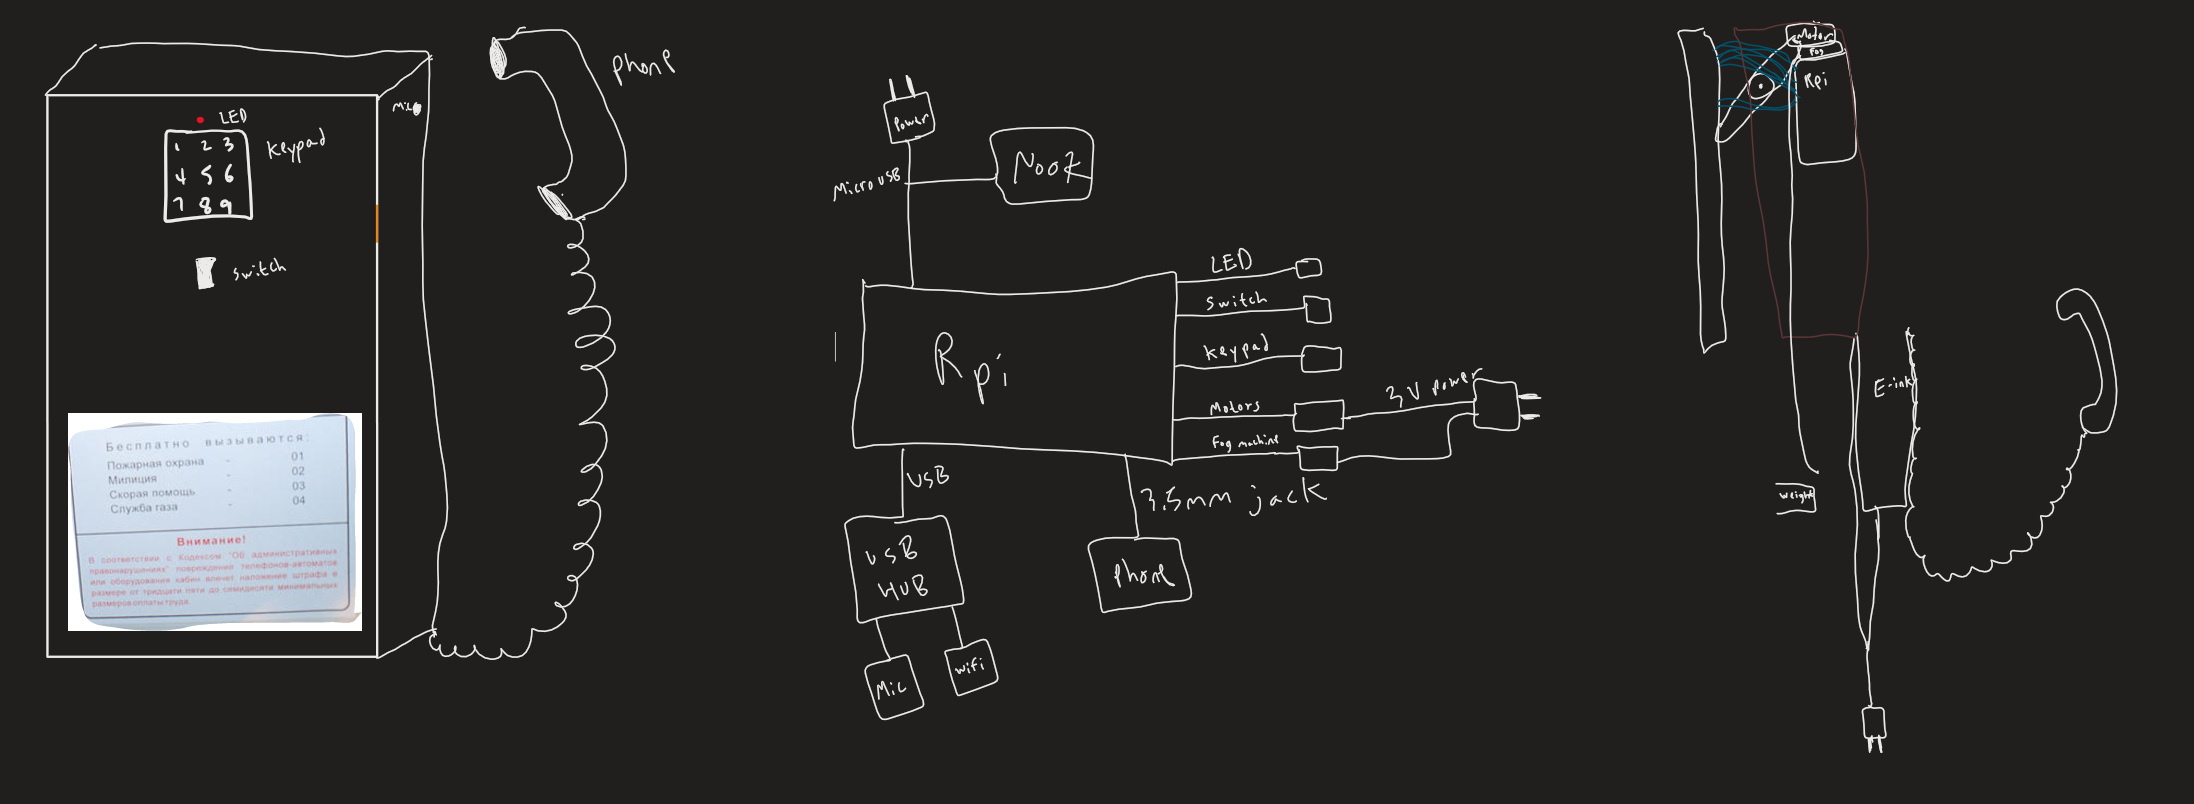 LED
Keypad
1 2 3
4 5 6
7 8 9
Switch
Mic
Phone
Бесплатно вызываются:
Пожарная охрана - 01
Милиция - 02
Скорая помощь - 03
Служба газа - 04
Внимание!
В соответствии с Кодексом "Об административных
правонарушениях" повреждение телефонов-автоматов
или оборудования кабин влечет наложение штрафа в
размере от тридцати пяти до семидесяти минимальных
размеров оплаты труда.
Power
Micro USB
Nook
Rpi
LED
Switch
Keypad
Motors
Fog machine
3V power
USB
3.5mm jack
USB
HUB
Phone
Mic
wifi
Motor
Fog
Rpi
E-ink
Weight